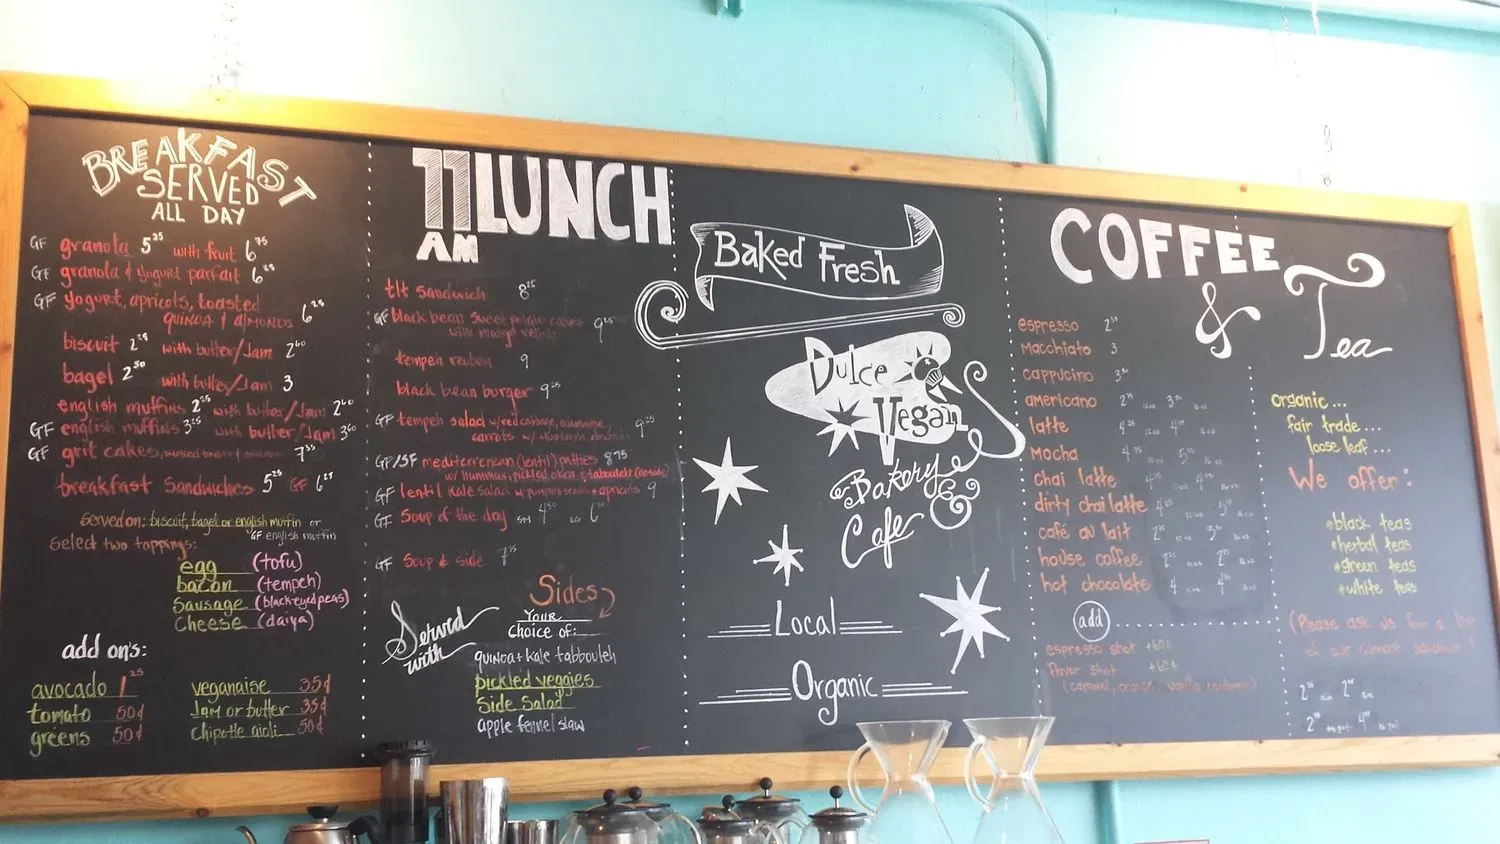 BREAKFAST
SERVED
ALL DAY
GF granola 5²⁵ with fruit 6⁷⁵
GF granola & yogurt parfait 6²⁵
GF yogurt, apricots, toasted
quinoa & almonds 6²⁵
biscuit 2²⁵ with butter/Jam 2⁶⁰
bagel 2⁵⁰ with butter/Jam 3
english muffins 2²⁵ with butter/Jam 2⁶⁰
GF english muffins 3²⁵ with butter/Jam 3⁶⁰
GF grit cakes,
breakfast Sandwiches 5²⁵ GF 6²⁵
served on: biscuit, bagel or english muffin or
GF english muffin
select two toppings:
egg (tofu)
bacon (tempeh)
Sausage (black-eyed peas)
Cheese (daiya)
add on's:
avocado 1²⁵
tomato 50¢
greens 50¢
veganaise 35¢
Jam or butter 35¢
chipotle aioli 50¢
11 AM LUNCH
tlt sandwich 8²⁵
GF black bean sweet potato cakes
with mango relish
tempeh reuben 9
black bean burger 9²⁵
GF tempeh salad w/red cabbage, edamame, 9²⁵
carrots w/
GF/SF mediterranean (lentil) patties 8⁷⁵
w/ hummus, pickled okra & tabouleh (no side)
GF lentil kale salad w/ pumpkin seeds & apricots 9
GF Soup of the day SM 4⁵⁰ LG 6
GF Soup & side
Served
with
Sides
Your
choice of:
quinoa + kale tabbouleh
pickled veggies
Side Salad
apple fennel slaw
Baked Fresh
Dulce
Vegan
Bakery &
Cafe
Local
Organic
COFFEE
& Tea
espresso
macchiato 3
cappucino
americano
latte
mocha
chai latte
dirty chai latte
café au lait
house coffee
hot chocolate
add
espresso shot +60¢
flavor shot +60¢
organic...
fair trade...
loose leaf...
We offer:
*black teas
*herbal teas
*green teas
*white teas
(Please ask us for a list
of our current selection!)